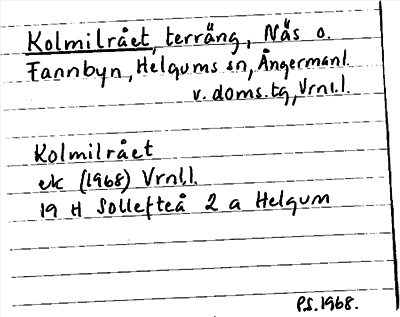 Kolmilrået, terräng, Näs o.
Fannbyn, Helgums sn, Ångermanl.
v. doms.tg, Vrnl.l.
Kolmilrået
ek (1968) Vrnl.l.
19 H Sollefteå 2 a Helgum
P.S. 1968.